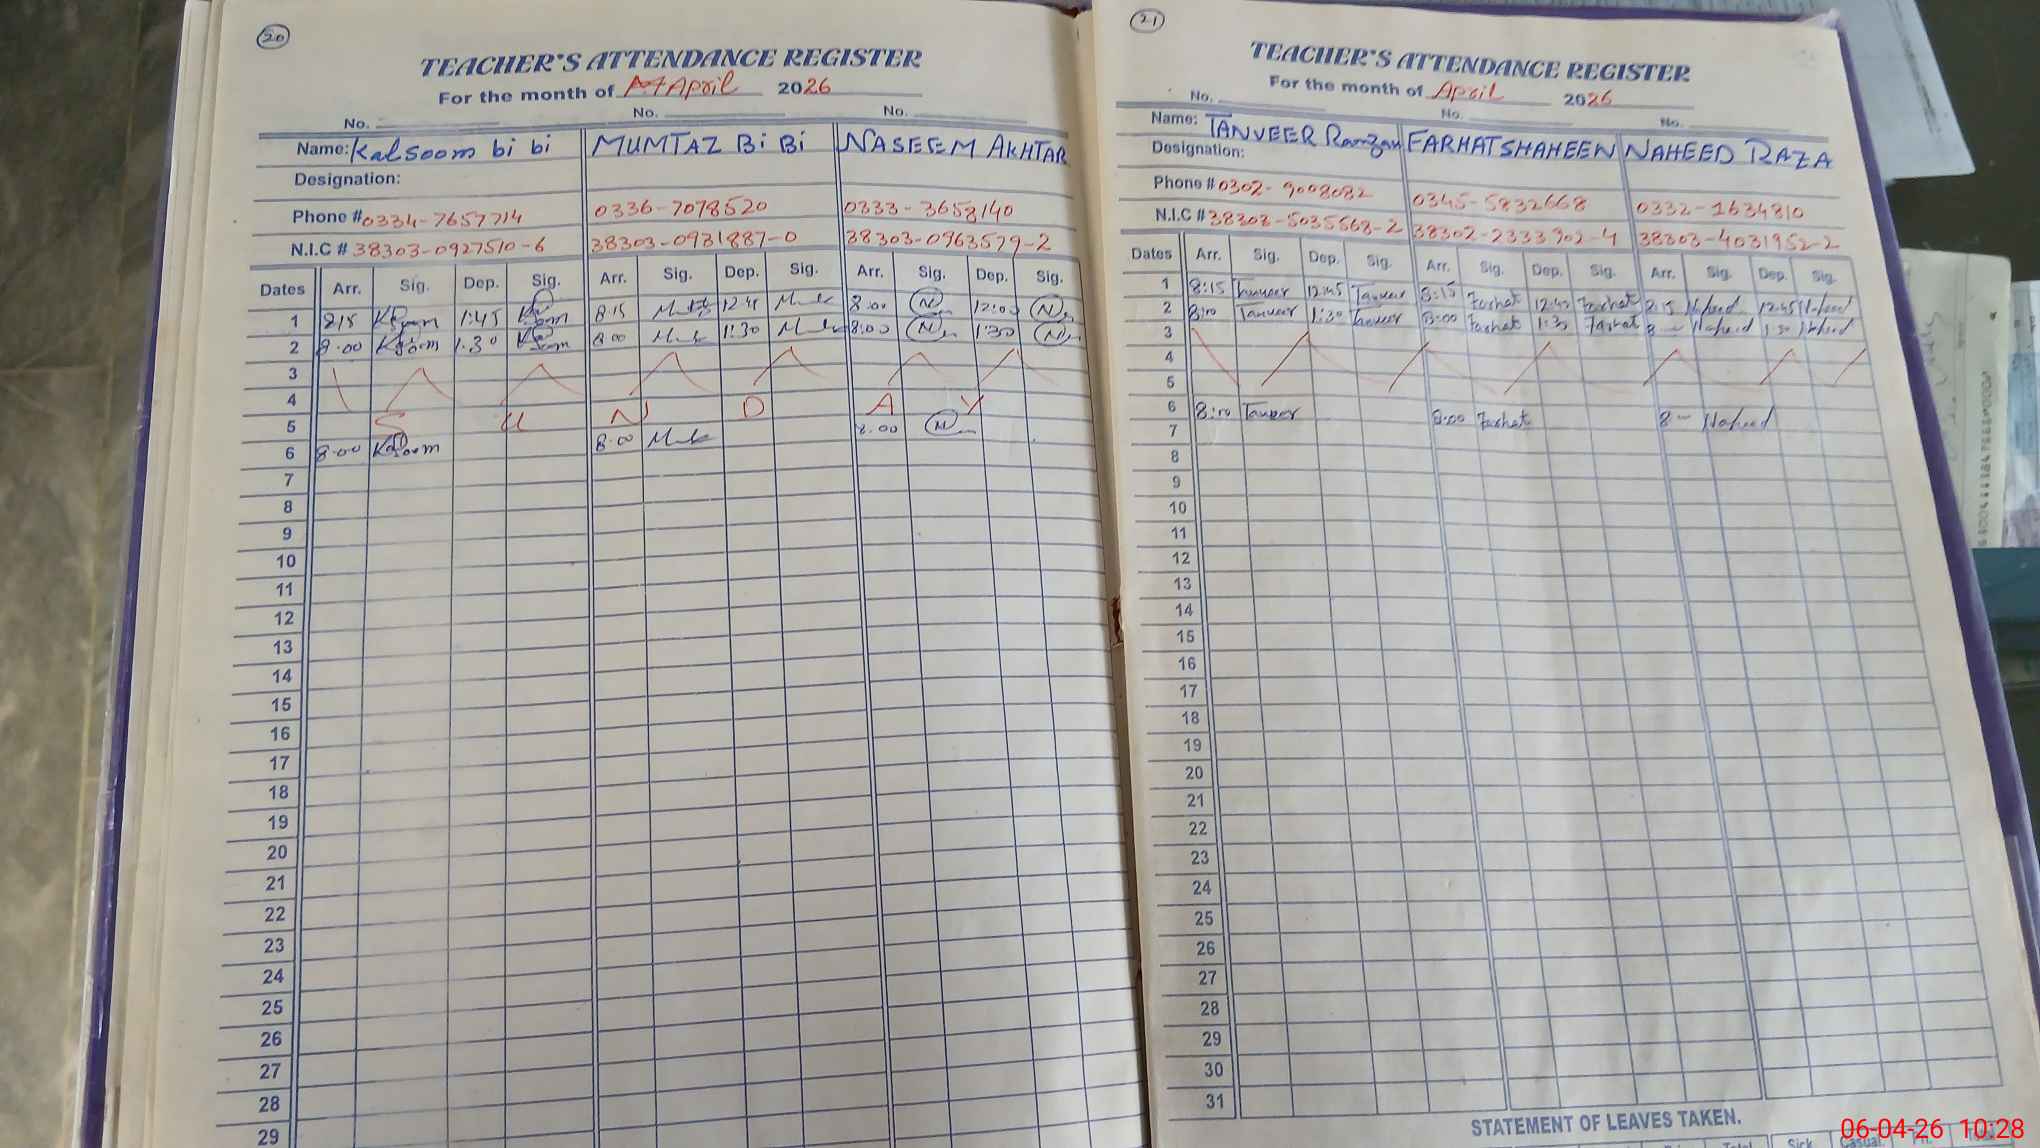 20
TEACHER'S ATTENDANCE REGISTER
For the month of April 2026
No. No. No.
Name: Kalsoom bi bi MUMTAZ Bi Bi NASEEM AKHTAR
Designation:
Phone # 0334-7657714 0336-7078520 0333-3658140
N.I.C # 38303-0927510-6 38303-0931887-0 38303-0963579-2
Dates Arr. Sig. Dep. Sig. Arr. Sig. Dep. Sig. Arr. Sig. Dep. Sig.
1 815 1:45 8:15 8:00 12:00
2 8:00 1:30 8:00 1:30 8:00 1:30
3
4
5 S U N D A Y
6 8:00 8:00 8:00
7
8
9
10
11
12
13
14
15
16
17
18
19
20
21
22
23
24
25
26
27
28
29
21
TEACHER'S ATTENDANCE REGISTER
For the month of April 2026
No. No. No.
Name: TANVEER Ramzan FARHAT SHAHEEN NAHEED RAZA
Designation:
Phone # 0302-9008082 0345-5832668 0332-1634810
N.I.C # 38303-5035568-2 38302-2333902-4 38303-4031952-2
Dates Arr. Sig. Dep. Sig. Arr. Sig. Dep. Sig. Arr. Sig. Dep. Sig.
1 8:15 Tanveer 12:45 Tanveer 8:15 Farhat Farhat 8:15 Naheed 12:45 Naheed
2 Tanveer 1:30 Tanveer 8:00 Farhat 1:30 Farhat 8 — Naheed 1:30 Naheed
3
4
5
6 Tanveer 8:00 Farhat 8 — Naheed
7
8
9
10
11
12
13
14
15
16
17
18
19
20
21
22
23
24
25
26
27
28
29
30
31
STATEMENT OF LEAVES TAKEN.
Total Sick Casual
06-04-26 10:28